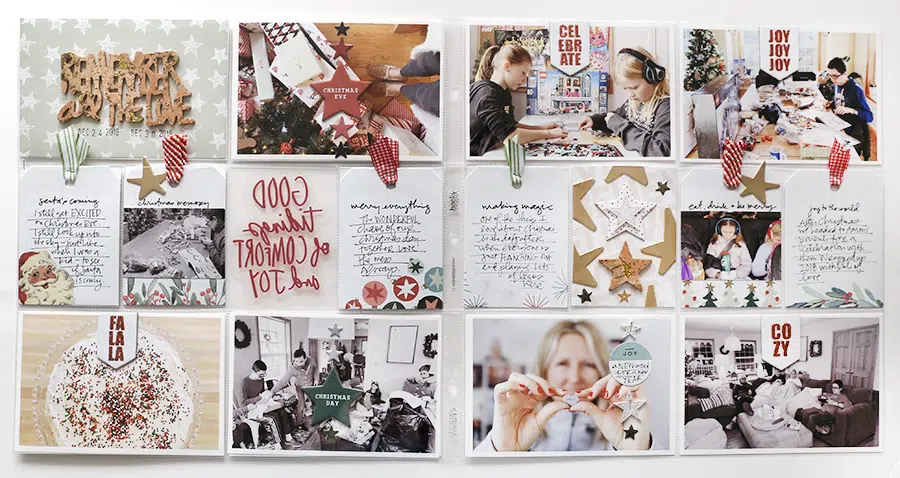 REMEMBER
DEC 24 2018 DEC 30 2018
CHRISTMAS
EVE
CEL
EBR
ATE
JOY
JOY
JOY
santa's coming
I still get EXCITED
on Christmas EVE
I still look up into
the sky - just like
when I was a
of Santa
christmas memory
GOOD
tidings
of COMFORT
and JOY
merry everything
The WONDERFUL
chaos of our
christmas day
together. Love
the mess
Always.
making magic
one of the things I
love about Christmas
is the
just HANGING out
and playing. Lots
of
eat, drink + be merry
joy to the world
After Christmas
we headed to
for a
celebration with
FA
LA
LA
CHRISTMAS
DAY
JOY
YEAR
CO
ZY